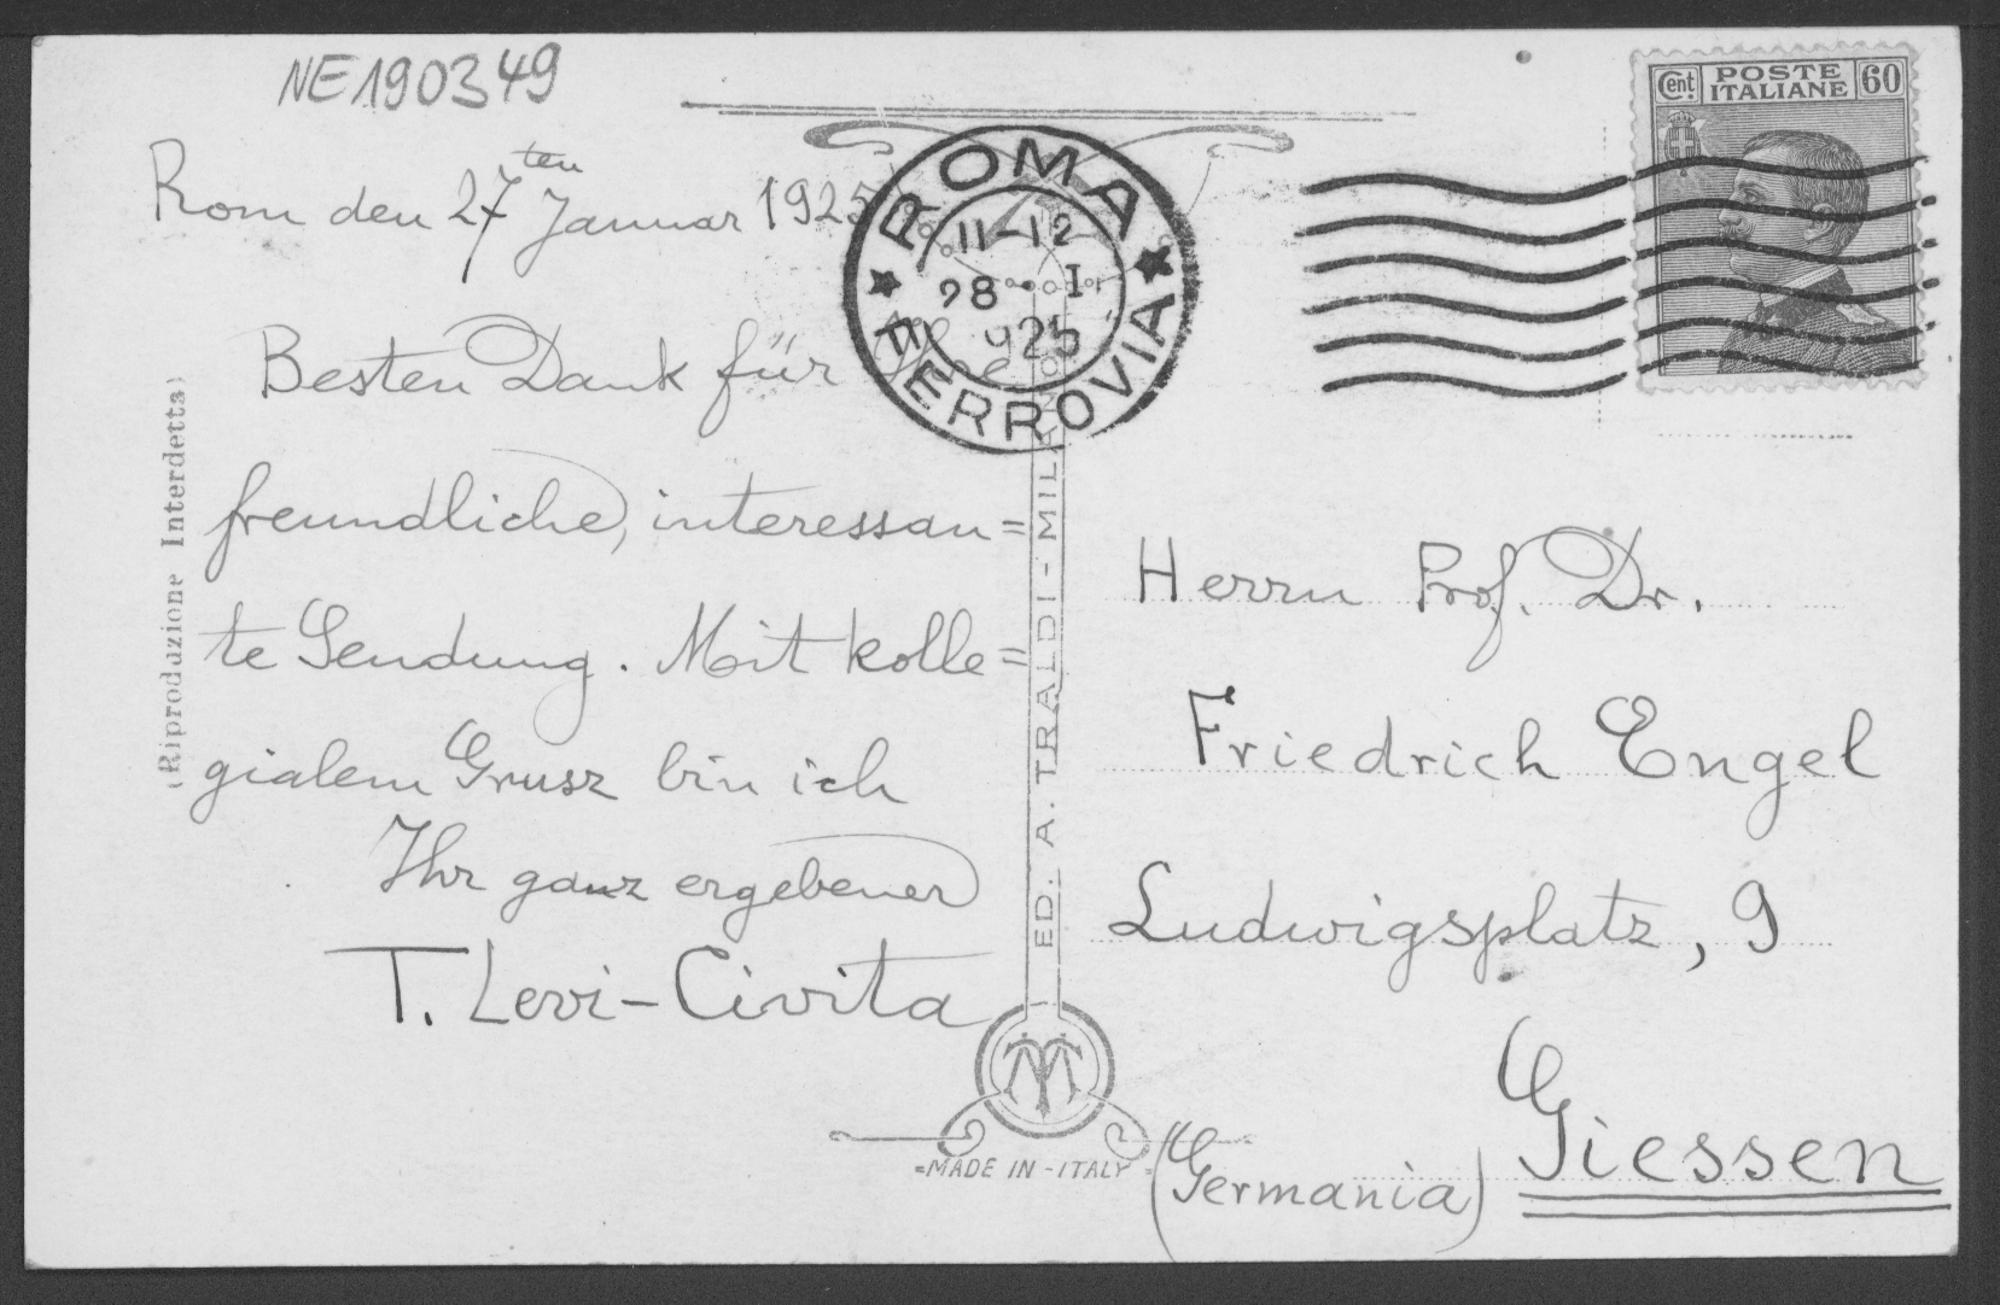 NE190349
Rom den 27ten Januar 1925
Besten Dank für Ihre
freundliche, interessan=
te Sendung. Mit kolle=
gialem Grusz bin ich
Ihr ganz ergebener
T. Levi-Civita
(Riproduzione Interdetta)
ROMA
11-12
28 I
925
FERROVIA
Cent. POSTE ITALIANE 60
ED. A. TRALDI - MILANO
Herrn Prof. Dr.
Friedrich Engel
Ludwigsplatz, 9
Giessen
(Germania)
=MADE IN-ITALY=